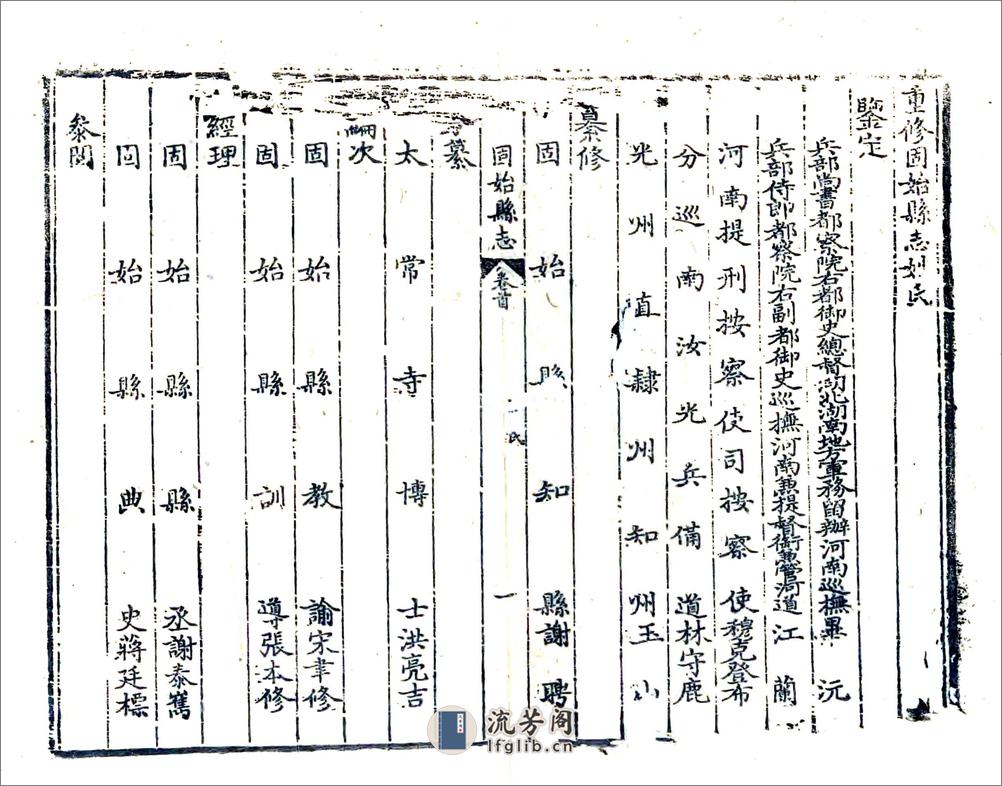 重修固始縣志姓氏
鑒定
兵部尚書都察院右都御史總督湖北湖南地方軍務留辦河南巡撫畢沅
兵部侍郎都察院右副都御史巡撫河南兼提督銜兼管河道江蘭
河南提刑按察使司按察使穆克登布
分巡南汝光兵備道林守鹿
光州直隸州知州玉山
纂修
固始縣知縣謝聘
固始縣志 卷首 氏 一
纂
太常寺博士洪亮吉
編次
固始縣教諭宋聿修
固始縣訓導張本修
經理
固始縣縣丞謝泰嶲
固始縣典史蔣廷標
叅閱
流芳阁
lfglib.cn